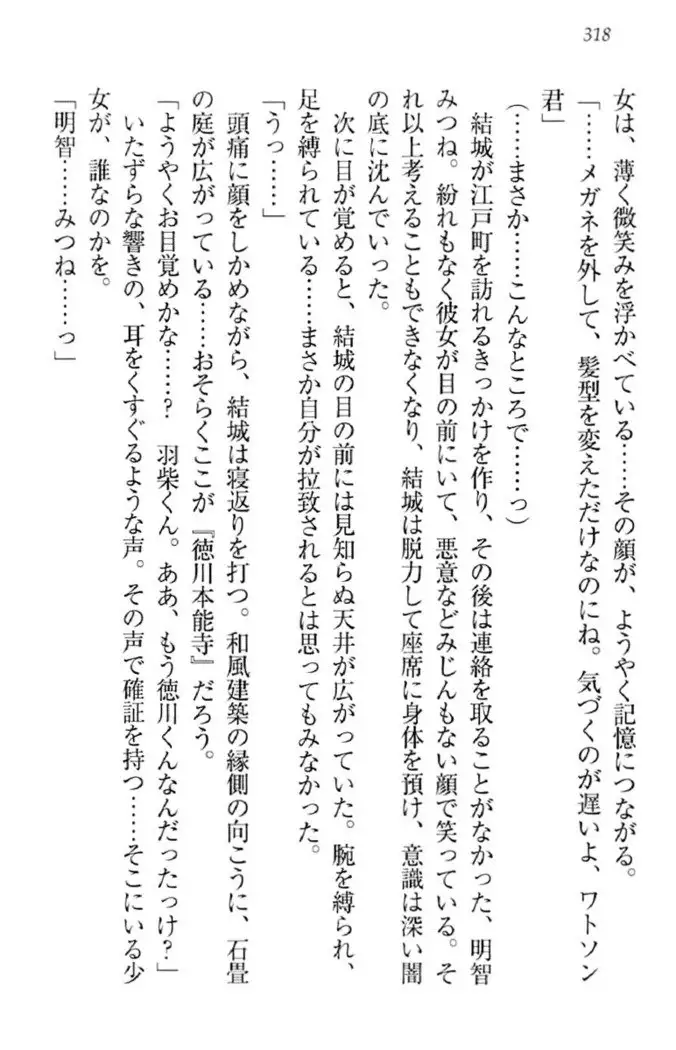 318
女は、薄く微笑みを浮かべている……その顔が、ようやく記憶につながる。
「……メガネを外して、髪型を変えただけなのにね。気づくのが遅いよ、ワトソン
君」
(……まさか……こんなところで……っ)
結城が江戸町を訪れるきっかけを作り、その後は連絡を取ることがなかった、明智
みつね。紛れもなく彼女が目の前にいて、悪意などみじんもない顔で笑っている。そ
れ以上考えることもできなくなり、結城は脱力して座席に身体を預け、意識は深い闇
の底に沈んでいった。
次に目が覚めると、結城の目の前には見知らぬ天井が広がっていた。腕を縛られ、
足を縛られている……まさか自分が拉致されるとは思ってもみなかった。
「うっ……」
頭痛に顔をしかめながら、結城は寝返りを打つ。和風建築の縁側の向こうに、石畳
の庭が広がっている……おそらくここが『徳川本能寺』だろう。
「ようやくお目覚めかな……? 羽柴くん。ああ、もう徳川くんなんだったっけ?」
いたずらな響きの、耳をくすぐるような声。その声で確証を持つ……そこにいる少
女が、誰なのかを。
「明智……みつね……っ」